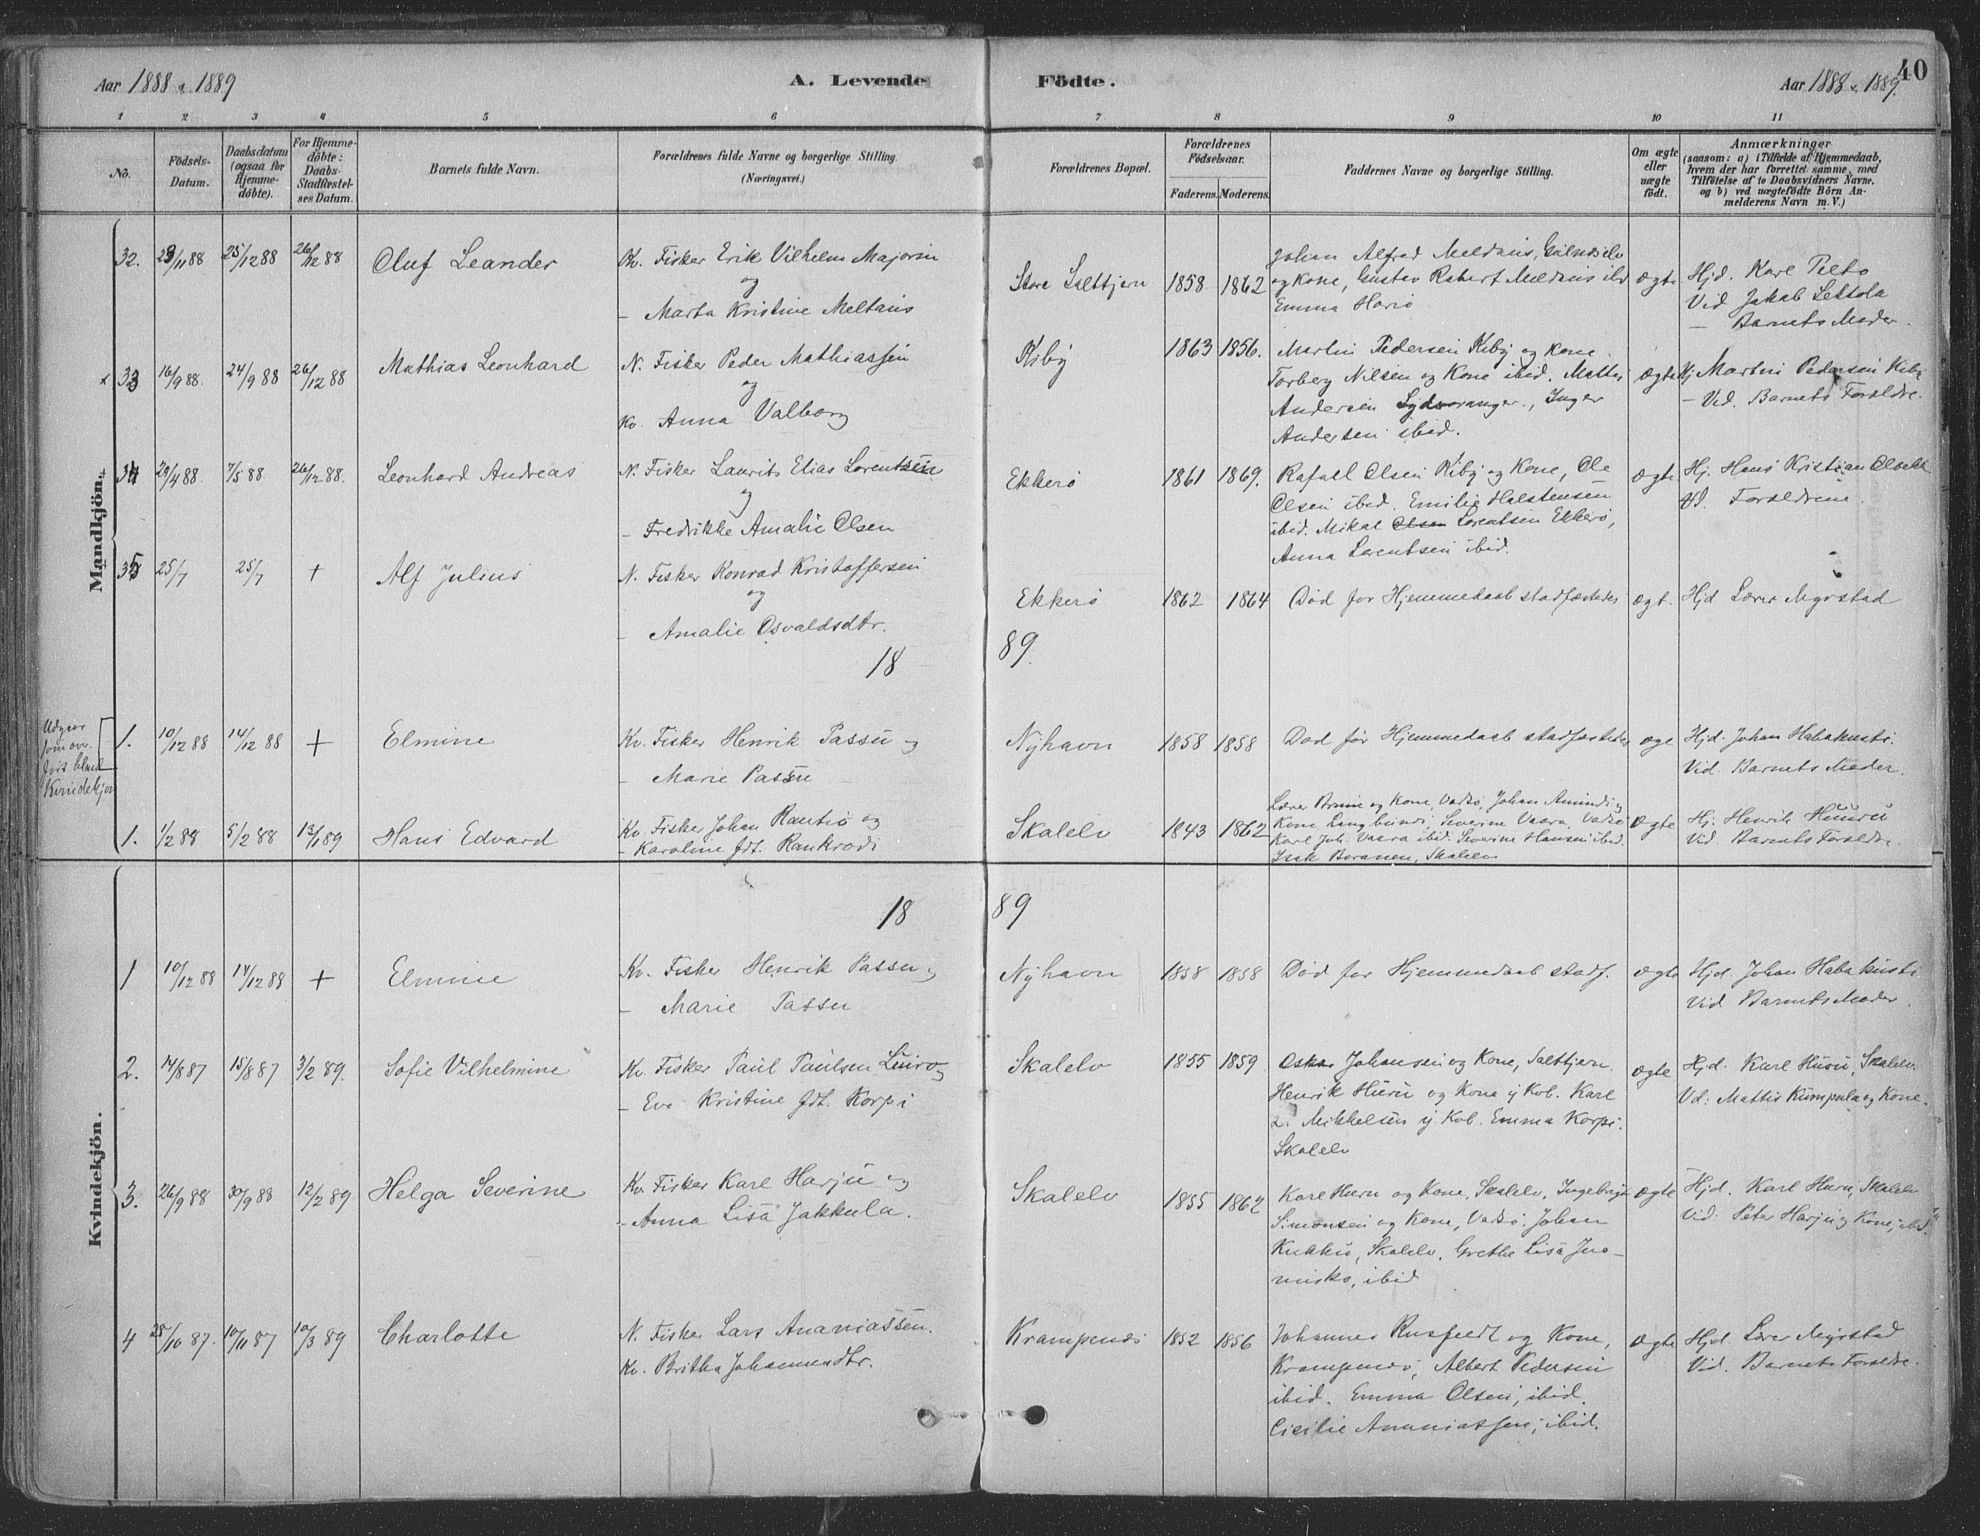 Aar 1888 & 1889
A. Levende Födte.
Aar 1888 & 1889.
40
1 2 3 4 5 6 7 8 9 10 11
No.
Födsels-Datum.
Daabsdatum (ogsaa for Hjemmedöbte).
For Hjemmedöbte: Daabs-Stadfæstelses Datum.
Barnets fulde Navn.
Forældrenes fulde Navne og borgerlige Stilling.
(Næringsvei.)
Forældrenes Bopæl.
Forældrenes Födselsaar.
Faderens. Moderens.
Faddernes Navne og borgerlige Stilling.
Om ægte eller uægte født.
Anmærkninger
(saasom: a) i Tilfælde af Hjemmedaab, hvem der har forrettet samme, med Tilföielse af to Daabsvidners Navne, og b) ved uægtefödte Börn Anmelderens Navn m. V.)
Mandkjön.
32. 29/11 88 25/12 88 26/12 88 Oluf Leander
Kv. Fisker Erik Vilhelm Majorin
og
– Marta Kristine Meltaus
Store Salttjern 1858 1862
Johan Alfred Meldaus,
og Kone, Gustav Robert Meldaus ibd
Emma Hario
ægte
Hjd. Karl Pelto
Vid Jakob Lettola
– Barnets Moder.
x 33 16/9 88. 24/9 88 26/12 88 Mathias Leonhard
N. Fisker Peder Mathiassen
og
Kv. Anna Valborg
Kiby 1863 1856.
Martin Pedersen Kiby og Kone.
Torberg Nilsen og Kone ibid. Mattis
Andersen Sydvaranger., Inger
Andersen ibid.
ægte
Hj Martin Pedersen Kiby
– Vid. Barnets Forældre.
34 29/4 88 7/5 88 26/12 88. Leonhard Andreas
N. Fisker Laurits Elias Lorentzen
og
– Fredrikke Amalie Olsen
Ekkerø 1861 1869.
Rafael Olsen Kiby og Kone, Ole
Olsen ibid. Emilie Halstensen
ibid. Mikal Olsen Lorentsen Ekkerø,
Anna Lorentsen ibid.
ægte
Hj. Hans Kristian
Vd. Forældrene.
35 25/7 25/7 + Alf Julius
N. Fisker Konrad Kristoffersen
og
– Amalie Osvaldsdtr.
Ekkerø 1862 1864
Død før Hjemmedaab stadfæstedes
ægt.
Hjd Lærer Myrstad
18 89.
Udgaar
som over-
ført blandt
Kvindekjøn
1. 10/12 88 14/12 88 + Elmine
Kv. Fisker Henrik Passu og
– Marie Passu
Nyhavn 1858 1858
Død før Hjemmedaab stadfæstedes
æge
Hjd. Johan Habakusti.
Vid. Barnets Moder.
1. 1/2 88 5/2 88 13/1 89 Hans Edvard
Kv. Fisker Johan Rautio og
– Karoline fdt. Rankrodi
Skalelv 1843 1862
Lærer Brune og Kone, Vadsø, Johan
Kone Severine Vaara, Vadsø
Karl Joh. Vaara ibid. Severine Hansen ibid.
Isak Skalelv
ægte
Hj. Henrik Huuru
Vid. Barnets Forældre
Kvindekjön.
18 89
1 10/12 88 14/12 88 + Elmine
Kv. Fisker Henrik Passu og
– Marie Passu
Nyhavn 1858 1858
Død før Hjemmedaab stadf.
ægte
Hjd. Johan Habakusti
Vid Barnets Moder.
2. 14/8 87 15/8 87 3/2 89. Sofie Vilhelmine
Kv. Fisker Paul Paulsen Leiro og
– Eva Kristine fdt. Korpi
Skalelv 1855 1859
Oskar Johansen og Kone, Salttjern.
Henrik Huru og Kone y Kob. Karl
L. Mikkelsen y. Kob. Emma Korpi.
Skalelv
ægte
Hjd. Karl Huru, Skalelv.
Vd. Mattis Kumpula og Kone.
3. 26/9 88 30/9 88 12/2 89 Helga Severine
Kv. Fisker Karl Harju og
– Anna Lisa Jakkula.
Skalelv 1855 1862
Karl Huru og Kone, Skalelv, Ingebrigt
Simonsen og Kone, Vadsø. Johan
Skalelv. Grethe Lisa
ibid
ægte
Hjd. Karl Huru, Skalelv
Vid. Peter Harju og Kone, ibid.
4 25/10 87. 10/11 87 10/3 89 Charlotte
N. Fisker Lars Ananiassen.
Kv. Britha Johannesdtr.
Krampenæs 1852 1856
Johannes Rusfeldt og Kone,
Krampenæs, Albert Pedersen
ibid. Emma Olsen, ibid.
Cicilie Ananiassen, ibid.
ægte
Hjd. Lærer Myrstad
Vid. Barnets Forældre.